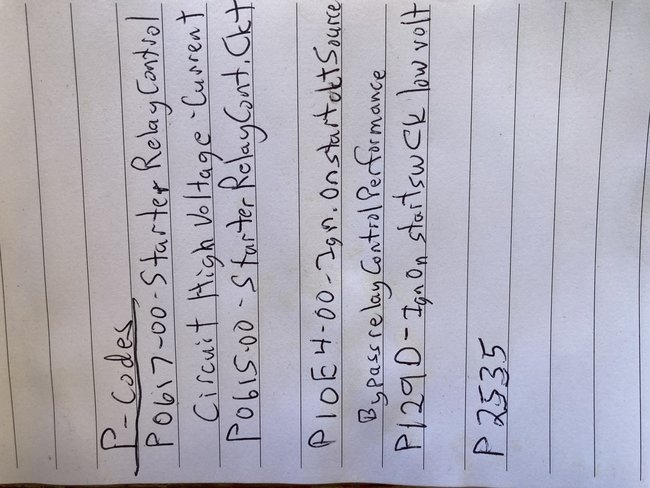 P-Codes
P0617-00-Starter Relay Control
Circuit High Voltage-Current
P0615-00-Starter Relay Cont. Ckt
P10E4-00-Ign. On start ckt Source
Bypass relay Control Performance
P129D-Ign On start sw Ck low volt
P2535